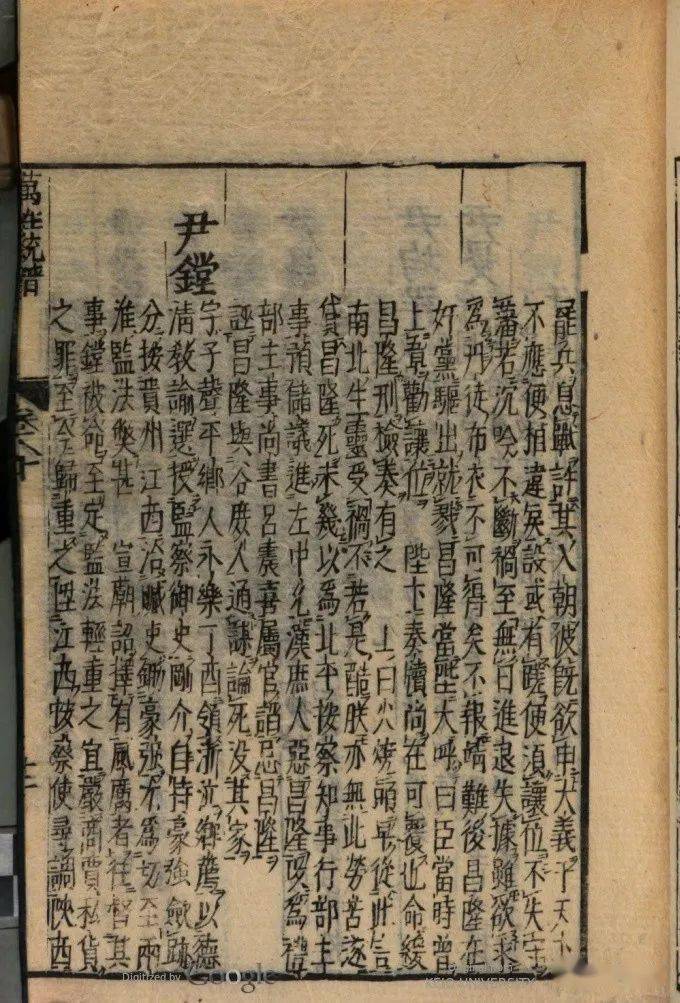 罷兵息戰許其入朝彼既欲申大義于天下
不應便相違戾設或有蹉便須讓位不失守
藩若沉吟不斷禍至無日進退失據雖欲求
為丹徒布衣不可得矣不報靖難後昌隆在
奸黨驅出就戮昌隆當陛大呼曰臣當時曾
上章勸讓位陛下奏牘尚在可覆也命緩
昌隆刑檢奏有之上曰火燒頭早從此言
南北生靈受禍不若是酷朕亦無此勞苦遂
貸昌隆死未幾以為北平按察知事行部主
事領儲議進左中允漢庶人惡昌隆誤為禮
部主事尚書呂震喜屬官諂忌昌隆
誣昌隆與谷庶人通謀論死没其家
尹鏜
字子聲平鄉人永樂丁酉領浙江鄉薦以德
清教諭選授監察御史剛介自持豪強斂跡
分按貴州江西治贓吏鋤豪強尤為切至兩
淮監法獘甚宣廟詔擇有風厲者往督其
事鏜被命至定監法輕重之宜嚴商賈私貨
之罪至今歸重之陞江西按察使尋調陝西
萬姓統譜
卷八十
Digitized by Google
KEIO UNIVERSITY